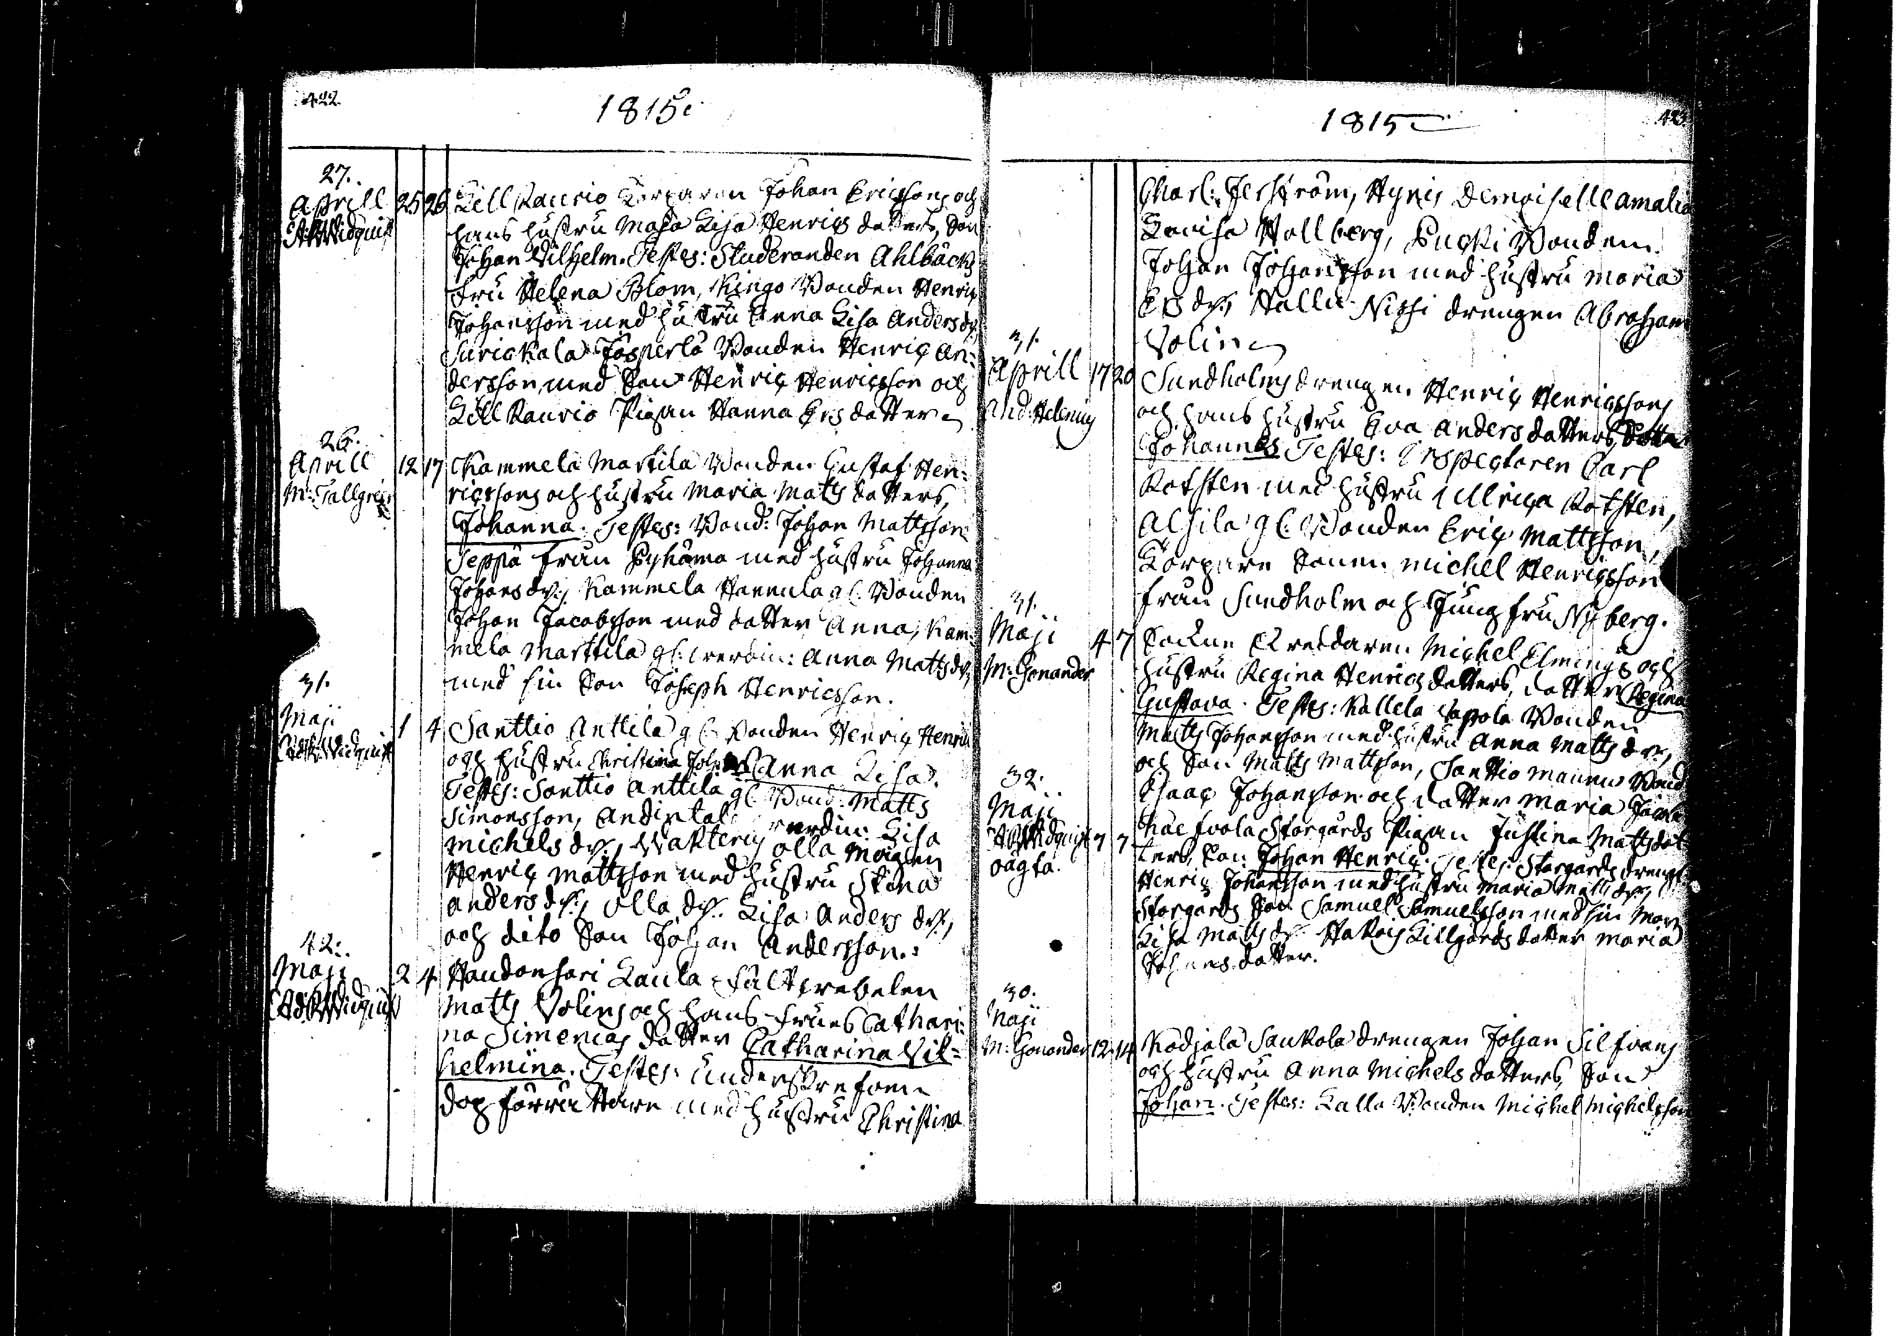 422.
1815.
27.
Aprill 25 26 Lill Kaurio Torparen Johan Ericssons och
Ad: Widquist hans hustru Maja Lisa Henrics datters, Son
Johan Wilhelm. Testes: Studeranden Ahlbäcks
fru Helena Blom, Ringo Bonden Henric
Johansson med hustru Anna Lisa Anders dr.
Surickala Jösperlä Bonden Henric An-
dersson, med Son Henric Henricsson och
Lill Kaurio Pigan Hanna Ers datter
26.
Aprill 12 17 Kammela Marttila Bonden Gustaf Hen-
M: Tallgren ricssons och hustru Maria Matts datters,
Johanna. Testes: Bond: Johan Mattsson
Seppä från Pyhäma med hustru Johanna
Johans dr:, Kammela Hannula gl: Bonden
Johan Jacobsson med datter Anna, Kam-
mela Marttila gl: värdin: Anna Matts dr,
med sin Son Joseph Henricsson.
31.
Maji 1 4 Santtio Anttila gl: Bonden Henric Henrics
Ad: Widquist och hustru Christina Joh: Anna Lisa.
Testes: Santtio Anttila gl: Bond: Matts
Simonsson, värdin: Lisa
Michels dr:, olla Mågen
Henric Mattsson med hustru Stina
Anders dr:, olla dr: Lisa Anders dr:,
och dito Son Johan Andersson.
42.
Maji 2 4 Haudonsari Laula Fältväbelen
Ad: Widquist Matts Volins och hans Frues Cathari-
na Simenias datter Catharina Vil-
helmina. Testes: Underskrefven
dop förrättare med hustru Christina
423.
1815
Charl: Ferström, Hynis Demoiselle Amalia
Lovisa Wallberg, Pucki Bonden
Johan Johansson med hustru Maria
Ers dr:, Hallu Nichi drengen Abraham
Volin
31.
Aprill 17 20 Sundholms drengen Henric Henricssons
And: Helenius och hans hustru Eva Anders datters,
Johannes. Testes: Inspectoren Carl
Rotsten med hustru Ullrica Rotsten,
Alsila gl: Bonden Eric Mattsson,
Torpare Sonen Michel Henricsson
från Sundholm och Jungfru Nyberg.
31.
Maji 4 7 Michel Elmings och
M: Gonander hustru Regina Henrics datters, datter Regina
Gustava. Testes: Kallela Sapola Bonden
Matts Johansson med hustru Anna Matts dr:,
och Son Matts Mattsson, Santtio Maunu Bond
Isaac Johansson och datter Maria
32.
Maji
Ad: Widquist 7 7 Storgårds Pigan Justina Matts dat-
oägta. ters, Son Johan Henric. Testes: Storgårds drengen
Henric Johansson med hustru Maria Matts dr:,
Storgårds Son Samuel Samuelsson med sin Mor
Lisa Matts dr: Lillgårds datter Maria
Johans datter.
30.
Maji
M: Gonander 12 14 Kodjala Saukola drengen Johan Silfvans
och hustru Anna Michels datters, Son
Johan. Testes: Lalla Bonden Michel Michelsson